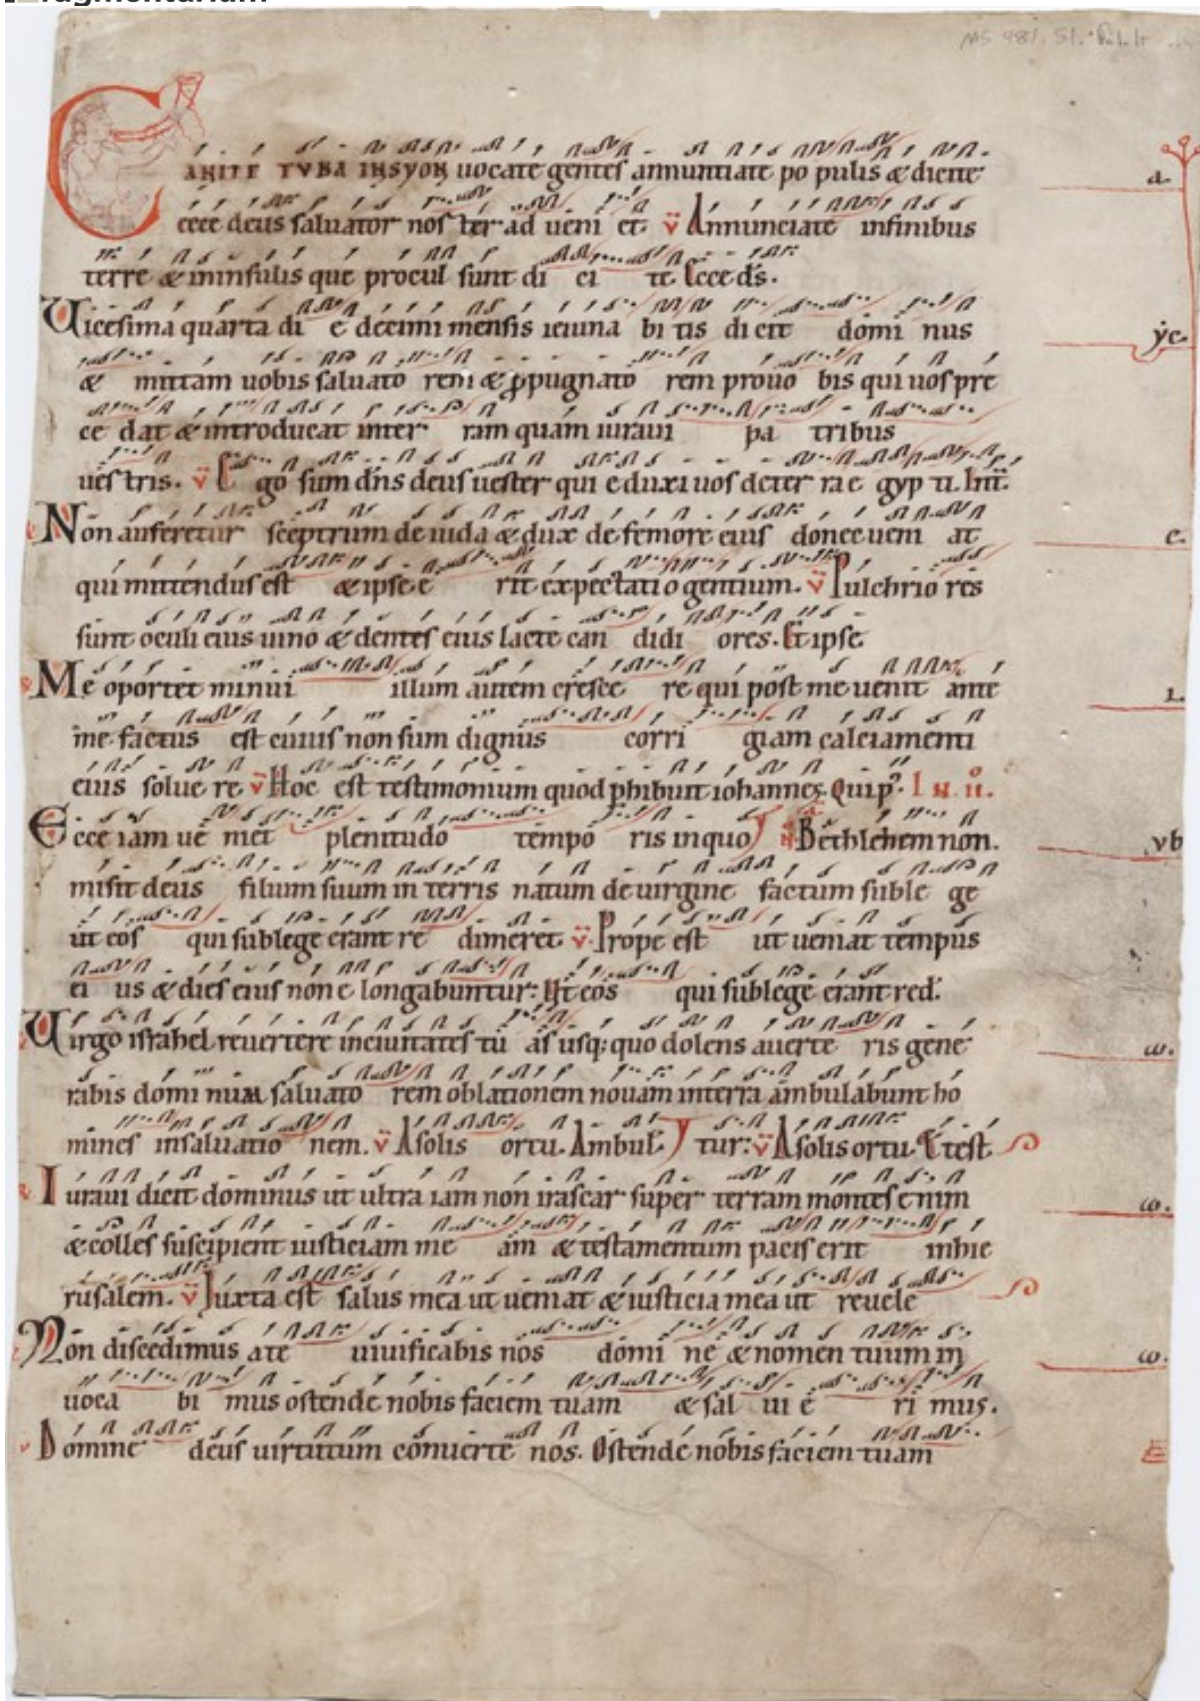 CANITE TVBA INSYON uocate gentes annuntiate po pulis & dicite
ecce deus saluator nos ter ad ueni et. v̈ Annunciate infinibus
terre & ininsulis que procul sunt di ci te Ecce ds.
Uicesima quarta di e decimi mensis ieiuna bi tis dicit domi nus
& mittam uobis saluato rem & ꝓpugnato rem prouo bis qui uos pre
ce dat & introducat inter ram quam iuraui pa tribus
ues tris. v̈ Ego sum dns deus uester qui eduxi uos deter ra e gyp ti.
Non auferetur sceptrum de iuda & dux de femore eius donec ueni at
qui mittendus est & ipse e rit expectati o gentium. v̈ Pulchrio res
sunt oculi eius uino & dentes eius lacte can didi ores. Et ipse
Me oportet minui illum autem cresce re qui post me uenit ante
me factus est cuius non sum dignus corri giam calciamenti
eius solue re v̈ Hoc est testimonium quod phibuit iohannes. Qui p̉. I N. II.
Ecce iam ue niet plenitudo tempo ris inquo Bethlehem non.
misit deus filium suum in terris natum de uirgine factum suble ge
ut eos qui sublege erant re dimeret v̈ Prope est ut ueniat tempus
ei us & dies eius non e longabuntur: Ut eos qui sublege erant red.
Uirgo israhel reuertere inciuitates tu as usq; quo dolens auerte ris gene
rabis domi num saluato rem oblationem nouam interra ambulabunt ho
mines insaluatio nem. v̈ A solis ortu. Ambul tur: v̈ A solis ortu. Et test
Iuraui dicit dominus ut ultra iam non irascar super terram montes enim
& colles suscipient iusticiam me am & testamentum pacis erit inhie
rusalem. v̈ Iuxta est salus mea ut ueniat & iusticia mea ut reuele
Non discedimus ate uiuificabis nos domi ne & nomen tuum in
uoca bi mus ostende nobis faciem tuam & sal ui e ri mus.
v Domine deus uirtutum conuerte nos. Ostende nobis faciem tuam